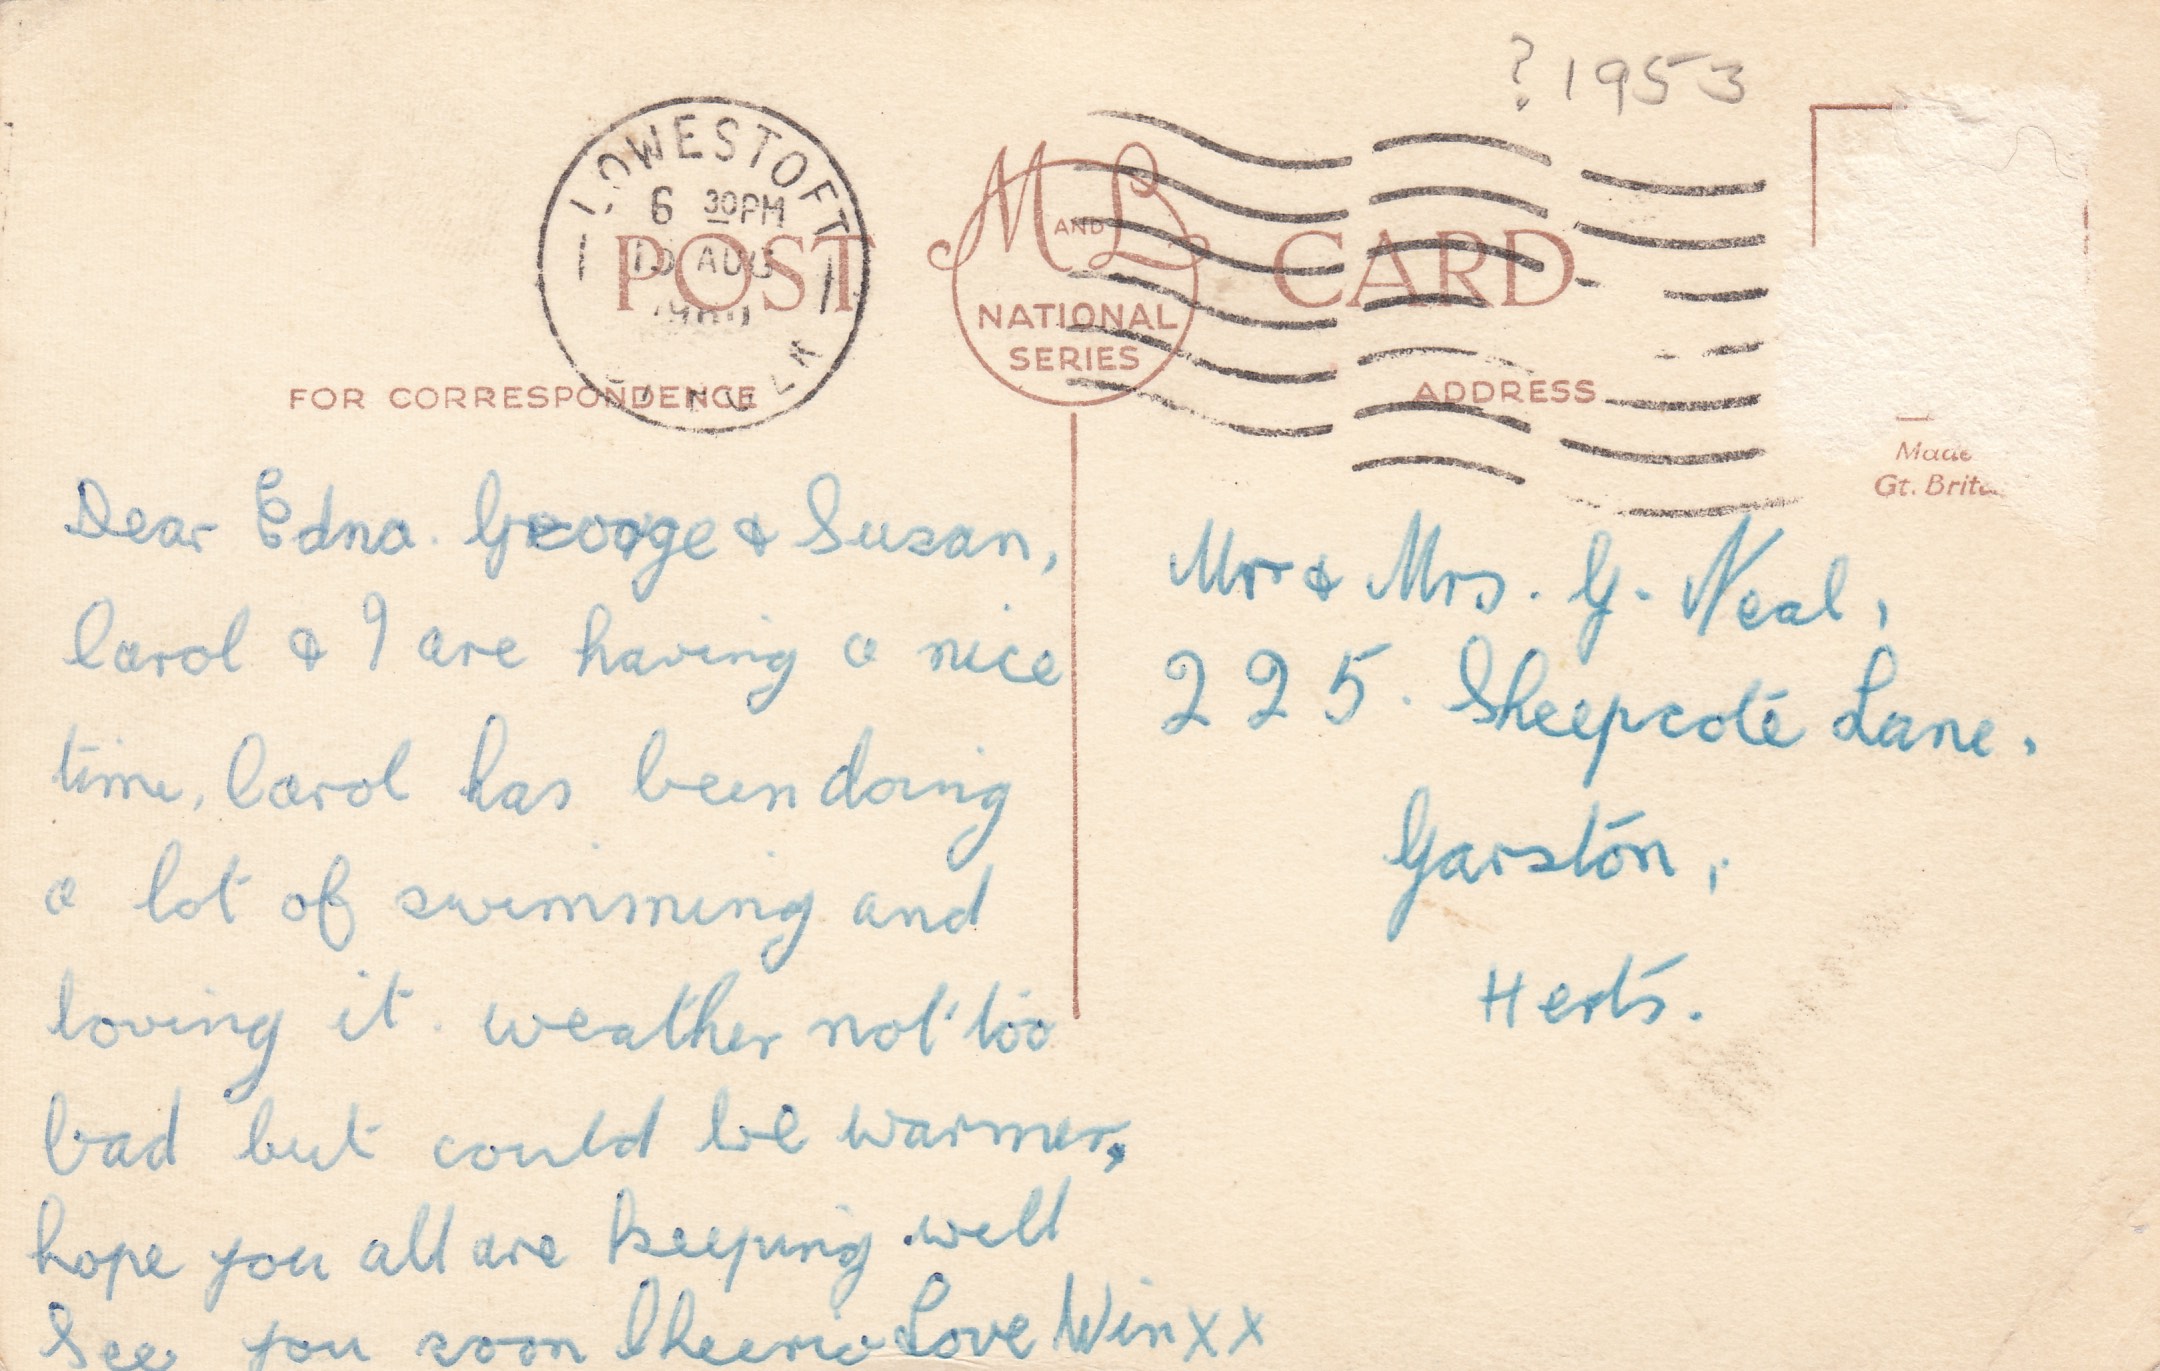 ? 1953
LOWESTOFT
6 30PM
AUG
POST
M AND L
NATIONAL
SERIES
CARD
FOR CORRESPONDENCE
ADDRESS
Made
Gt. Brit
Dear Edna. George & Susan,
Carol & I are having a nice
time, Carol has been doing
a lot of swimming and
loving it. weather not too
bad but could be warmer,
hope you all are keeping well
See you soon Cheerio Love Win x x
Mr & Mrs. G. Neal,
225. Sheepcote Lane,
Garston,
Herts.